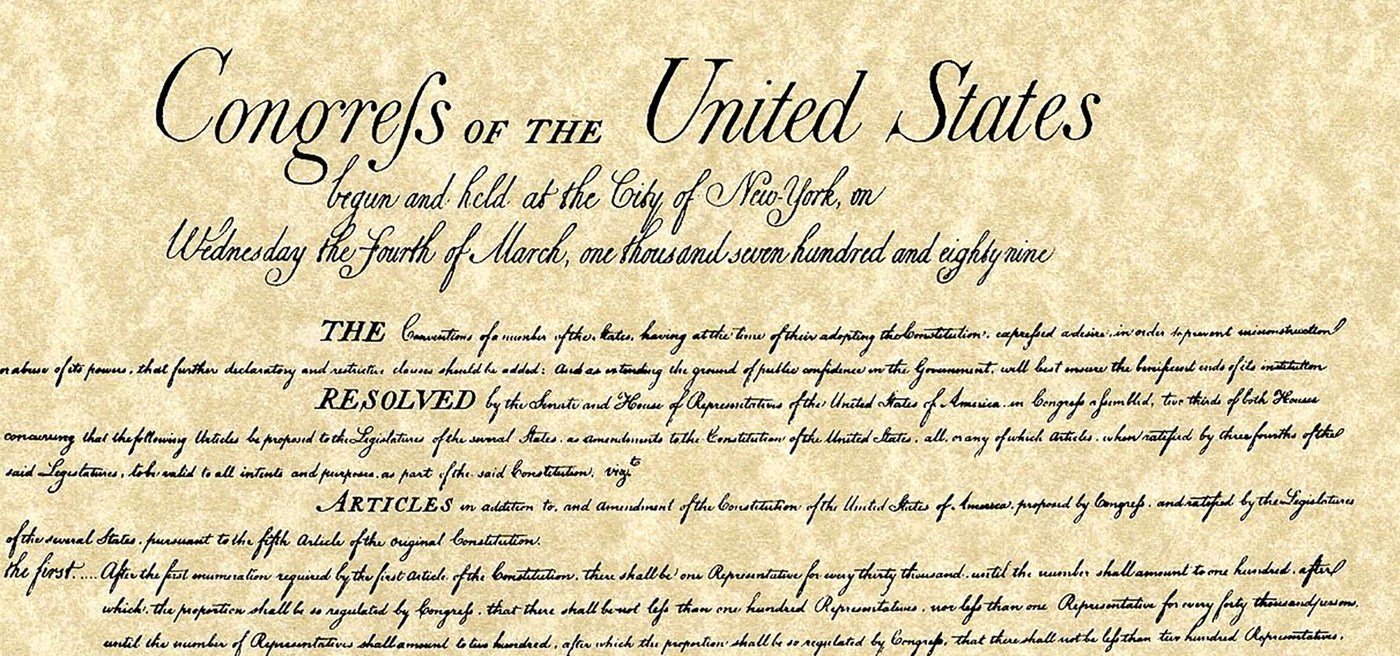 Congreſs OF THE United States
begun and held at the City of New-York, on
Wednesday the Fourth of March, one thousand seven hundred and eighty nine
THE Conventions of a number of the States, having at the time of their adopting the Constitution, expreſsed a desire, in order to prevent misconstruction
or abuse of its powers, that further declaratory and restrictive clauses should be added: And as extending the ground of public confidence in the Government, will best ensure the beneficent ends of its institution
RESOLVED by the Senate and House of Representatives of the United States of America, in Congreſs aſsembled, two thirds of both Houses
concurring that the following Articles be proposed to the Legislatures of the several States, as amendments to the Constitution of the United States, all, or any of which Articles, when ratified by three fourths of the
said Legislatures, to be valid to all intents and purposes, as part of the said Constitution, vizt.
ARTICLES in addition to, and amendment of the Constitution of the United States of America, proposed by Congreſs, and ratified by the Legislatures
of the several States, pursuant to the fifth Article of the original Constitution.
the first..... After the first enumeration required by the first Article of the Constitution, there shall be one Representative for every thirty thousand, until the number shall amount to one hundred, after
which, the proportion shall be so regulated by Congreſs, that there shall be not leſs than one hundred Representatives, nor leſs than one Representative for every forty thousand persons,
until the number of Representatives shall amount to two hundred, after which the proportion shall be so regulated by Congreſs, that there shall not be leſs than two hundred Representatives,